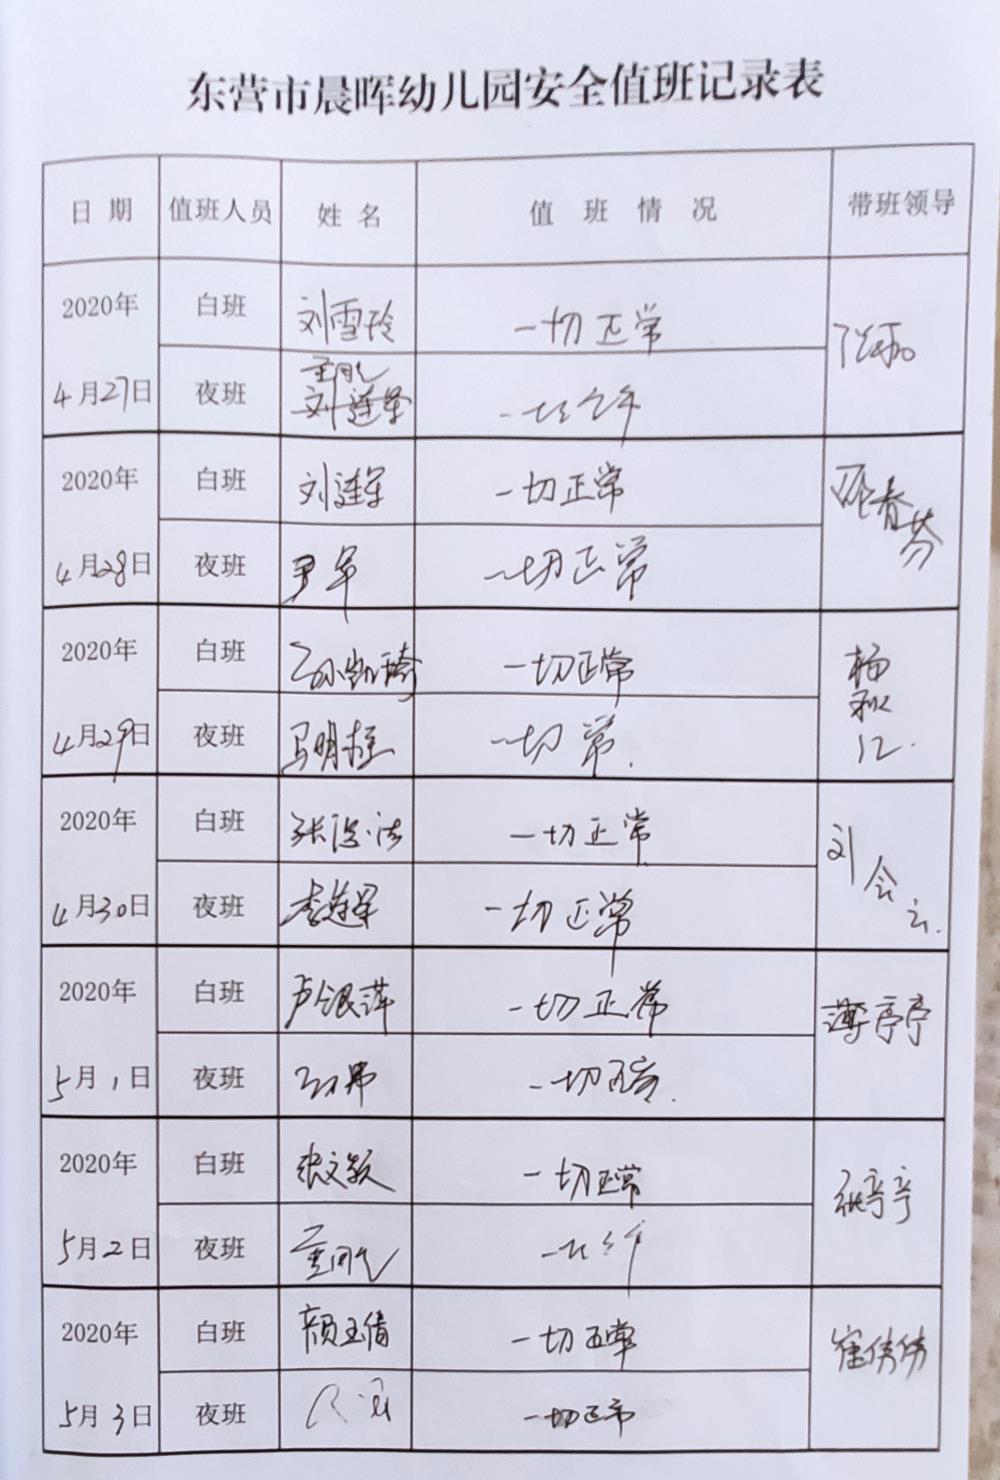 东营市晨晖幼儿园安全值班记录表
日期 值班人员 姓名 值班情况 带班领导
2020年 白班 刘雪玲 一切正常
4月27日 夜班 刘莲军
2020年 白班 刘莲军 一切正常
4月28日 夜班 一切正常
2020年 白班 孙凯琦 一切正常
4月29日 夜班 马明柱 一切常.
2020年 白班 一切正常 刘会云.
4月30日 夜班 李莲军 一切正常
2020年 白班 卢银萍 一切正常 薄亭亭
5月1日 夜班 一切正常.
2020年 白班 张文敏 一切正常
5月2日 夜班
2020年 白班 颜玉倩 一切正常 崔倩倩
5月3日 夜班 一切正常